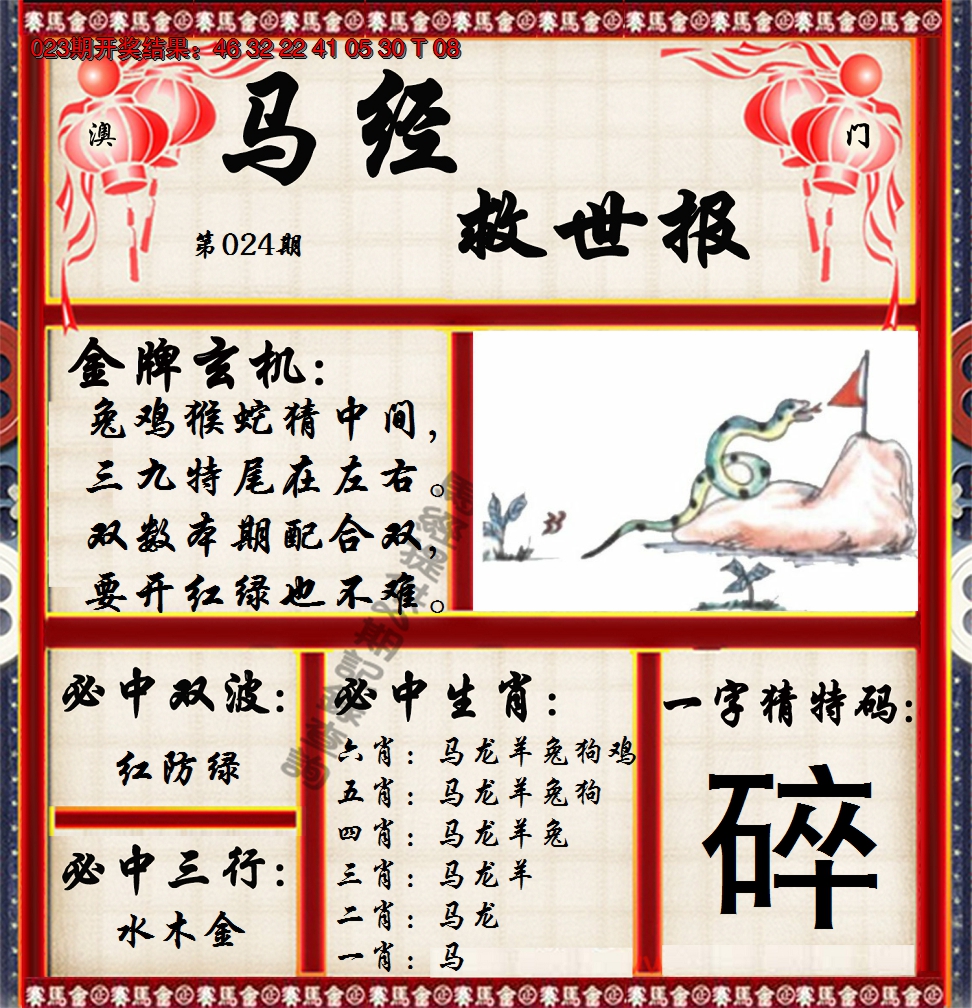 023期开奖结果：46 32 22 41 05 30 T 08
澳
门
马经
救世报
第024期
金牌玄机：
兔鸡猴蛇猜中间，
三九特尾在左右。
双数本期配合双，
要开红绿也不难。
必中双波：
红防绿
必中三行：
水木金
必中生肖：
六肖：马龙羊兔狗鸡
五肖：马龙羊兔狗
四肖：马龙羊兔
三肖：马龙羊
二肖：马龙
一肖：马
一字猜特码：
碎